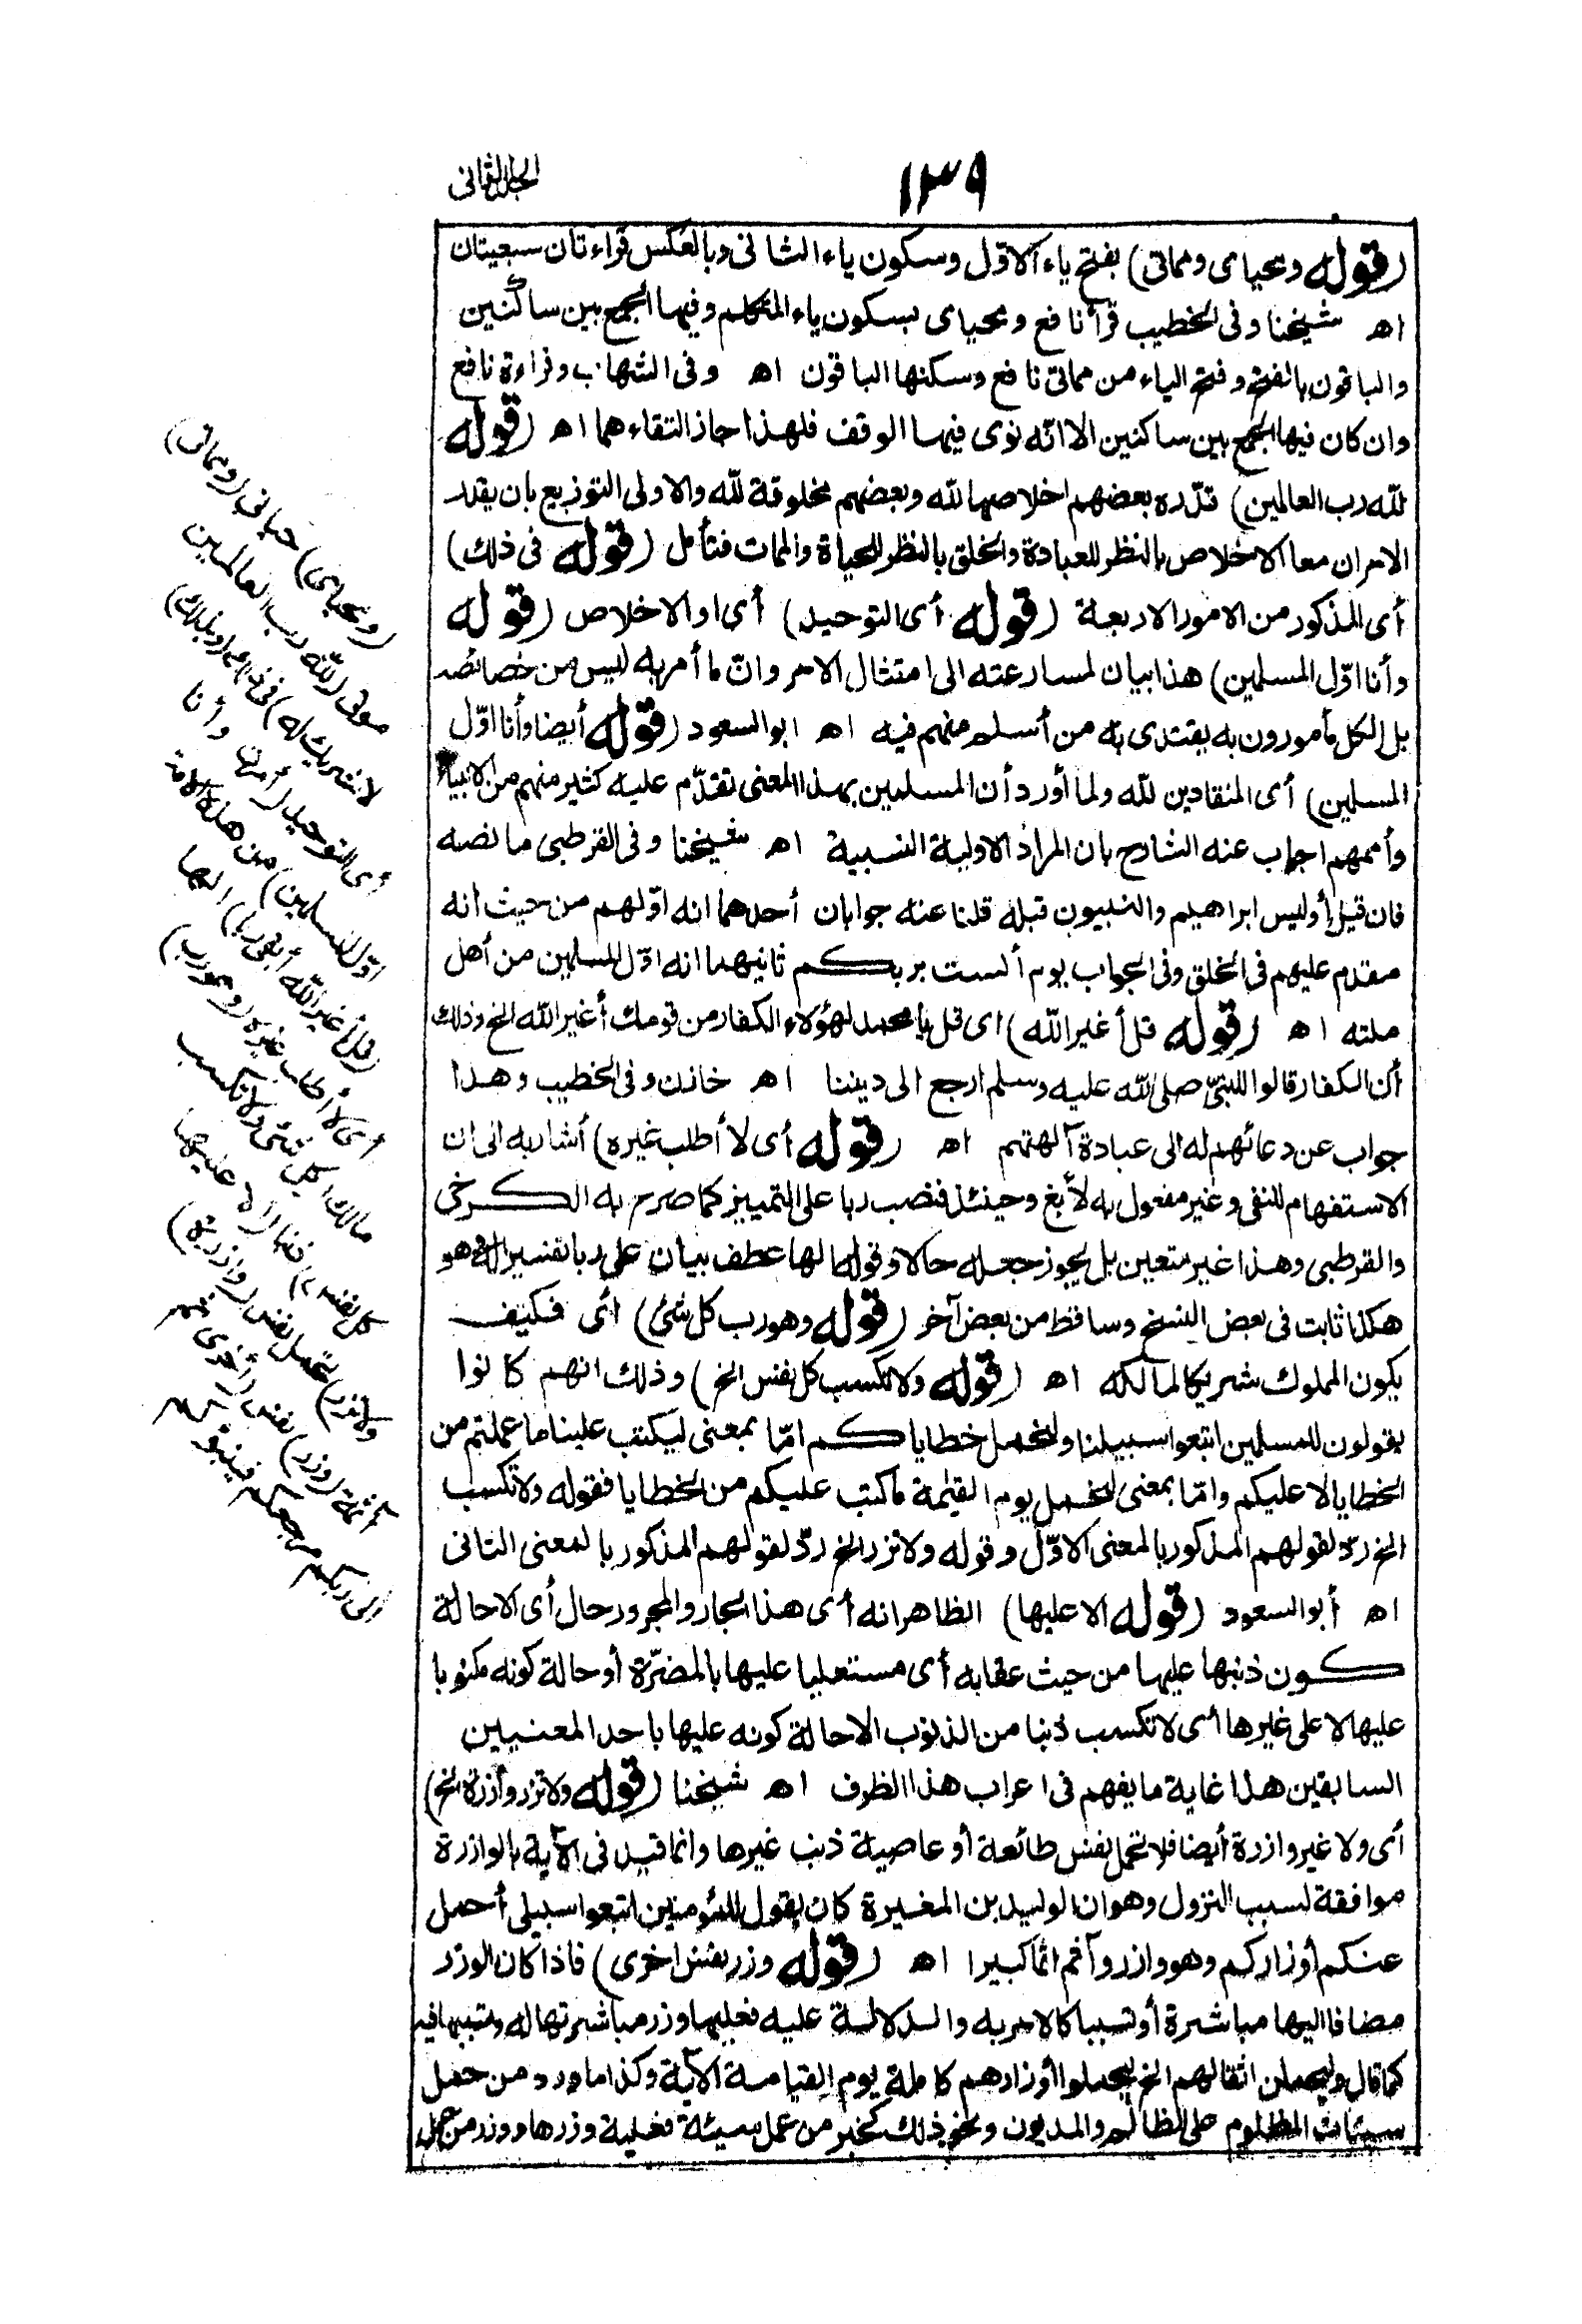 ١٣٩
الجلد الثانى
(قوله ومحياى ومماتى) بفتح ياء الاوّل وسكون ياء الثانى وبالعكس قراءتان سبعيتان
اه شيخنا وفى الخطيب قرأ نافع ومحياى بسكون ياء المتكلم وفيها الجمع بين ساكنين
والباقون بالفتح وفتح الياء من مماتى نافع وسكنها الباقون اه وفى الشهاب وقراءة نافع
وان كان فيها الجمع بين ساكنين الا انّه نوى فيها الوقف فلهذا جاز التقاءهما اه (قوله
للّه رب العالمين) قدّره بعضهم اخلاصها للّه وبعضهم مخلوقة للّه والاولى التوزيع بان يقدر
الامران معا الاخلاص بالنظر للعبادة والخلق بالنظر للحياة والممات فتأمل (قوله فى ذلك)
أى المذكور من الامور الاربعة (قوله أى التوحيد) أى او الاخلاص (قوله
وأنا اوّل المسلمين) هذا بيان لمسارعته الى امتثال الامر وانّ ما أمر به ليس من خصائصه
بل الكل مأمورون به يقتدى به من أسلم منهم فيه اه ابو السعود (قوله أيضا وأنا اوّل
المسلمين) أى المنقادين للّه ولما أورد أن المسلمين بهذا المعنى تقدّم عليه كثير منهم من الانبياء
وأممهم اجاب عنه الشارح بان المراد الاولية النسبية اه شيخنا وفى القرطبى ما نصه
فان قيل أوليس ابراهيم والنبيون قبله قلنا عنه جوابان أحدهما انه اوّلهم من حيث انه
مقدم عليهم فى الخلق وفى الجواب يوم ألست بربكم ثانيهما انه اوّل المسلمين من أهل
ملته اه (قوله قل أغير الله) اى قل يا محمد لهؤلاء الكفار من قومك أغير الله الخ وذلك
أن الكفار قالوا للنبىّ صلى الله عليه وسلم ارجع الى ديننا اه خازن وفى الخطيب وهذا
جواب عن دعائهم له الى عبادة آلهتهم اه (قوله أى لا أطلب غيره) أشار به الى ان
الاستفهام للنفى وغير مفعول به لأبغ وحينئذ فنصب ربا على التمييز كما صرح به الكرخى
والقرطبى وهذا غير متعين بل يجوز جعله حالا وقوله الها عطف بيان على ربا تفسير له وهو
هكذا ثابت فى بعض النسخ وساقط من بعض آخر (قوله وهو رب كل شئ) اى فكيف
يكون المملوك شريكا لمالكه اه (قوله ولا تكسب كل نفس الخ) وذلك انهم كانوا
يقولون للمسلمين اتبعوا سبيلنا ولنحمل خطاياكم امّا بمعنى ليكتب علينا ما عملتم من
الخطايا لا عليكم وامّا بمعنى لنحمل يوم القيٰمة ما كتب عليكم من الخطايا فقوله ولا تكسب
الخ ردّ لقولهم المذكور بالمعنى الاوّل وقوله ولا تزر الخ ردّ لقولهم المذكور بالمعنى الثانى
اه أبو السعود (قوله الا عليها) الظاهر انه أى هذا الجار والمجرور حال أى الا حالة
كون ذنبها عليها من حيث عقابه أى مستعليا عليها بالمضرّة أو حالة كونه مكتوبا
عليها لا على غيرها أى لا تكسب ذنبا من الذنوب الا حالة كونه عليها باحد المعنيين
السابقين هذا غاية ما يفهم فى اعراب هذا الظرف اه شيخنا (قوله ولا تزر وازرة الخ)
أى ولا غير وازرة أيضا فلا تحمل نفس طائعة أو عاصية ذنب غيرها وانما قيد فى الآية بالوازرة
موافقة لسبب النزول وهو ان الوليد بن المغيرة كان يقول للمؤمنين اتبعوا سبيلى أحمل
عنكم أوزاركم وهو وازر وآثم اثما كبيرا اه (قوله وزر نفس اخرى) فاذا كان الوزر
مضافا اليها مباشرة أو تسببا كالامر به والدلالة عليه فعليها وزر مباشرتها له وتسببها فيه
كما قال وليحملن اثقالهم الخ ليحملوا أوزارهم كاملة يوم القيامة الآية وكذا ما ورد من حمل
سيئات المظلوم على الظالم والمديون ونحو ذلك كخبر من عمل سيئة فعليه وزرها ووزر من عمل
(ومحياى) حياتى (ومماتى)
موتى (للّه رب العالمين
لا شريك له) فى ذلك (وبذلك)
أى التوحيد (أمرت وأنا
اوّل المسلمين) من هذه الامة
(قل أغير الله أبغى ربا) الها
أى لا أطلب غيره (وهو رب)
مالك (كل شئ ولا تكسب
كل نفس) ذنبا (الا عليها
ولا تزر) تحمل نفس (وازرة)
آثمة (وزر) نفس (أخرى ثم
الى ربكم مرجعكم فينبئكم